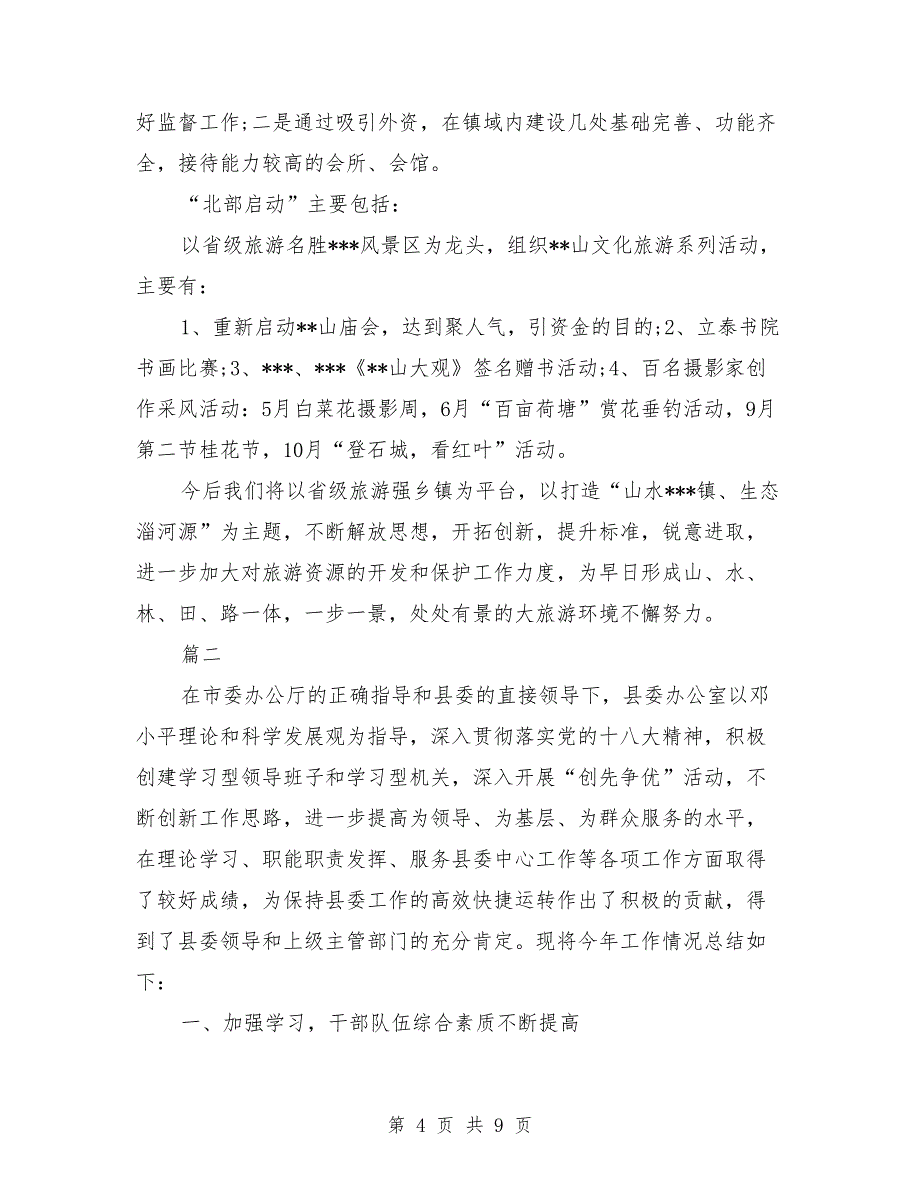 好监督工作;二是通过吸引外资，在镇域内建设几处基础完善、功能齐
全，接待能力较高的会所、会馆。
“北部启动”主要包括：
以省级旅游名胜***风景区为龙头，组织**山文化旅游系列活动，
主要有：
1、重新启动**山庙会，达到聚人气，引资金的目的;2、立泰书院
书画比赛;3、***、***《**山大观》签名赠书活动;4、百名摄影家创
作采风活动：5月白菜花摄影周，6月“百亩荷塘”赏花垂钓活动，9月
第二节桂花节，10月“登石城，看红叶”活动。
今后我们将以省级旅游强乡镇为平台，以打造“山水***镇、生态
淄河源”为主题，不断解放思想，开拓创新，提升标准，锐意进取，
进一步加大对旅游资源的开发和保护工作力度，为早日形成山、水、
林、田、路一体，一步一景，处处有景的大旅游环境不懈努力。
篇二
在市委办公厅的正确指导和县委的直接领导下，县委办公室以邓
小平理论和科学发展观为指导，深入贯彻落实党的十八大精神，积极
创建学习型领导班子和学习型机关，深入开展“创先争优”活动，不
断创新工作思路，进一步提高为领导、为基层、为群众服务的水平，
在理论学习、职能职责发挥、服务县委中心工作等各项工作方面取得
了较好成绩，为保持县委工作的高效快捷运转作出了积极的贡献，得
到了县委领导和上级主管部门的充分肯定。现将今年工作情况总结如
下：
一、加强学习，干部队伍综合素质不断提高
第 4 页 共 9 页